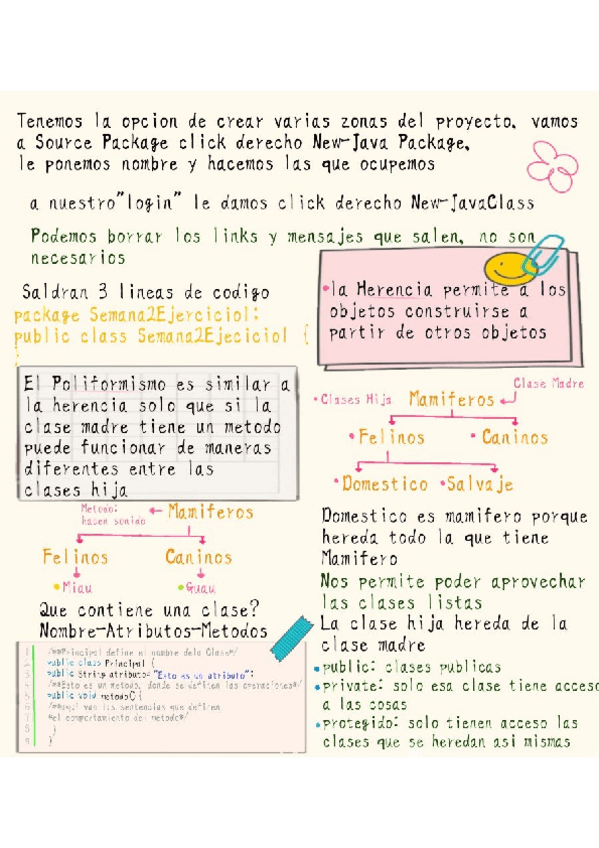 Tenemos la opcion de crear varias zonas del proyecto. vamos
a Source Package click derecho New-Java Package,
le ponemos nombre y hacemos las que ocupemos
a nuestro"login" le damos click derecho New-JavaClass
Podemos borrar los links y mensajes que salen, no son
necesarios
Saldran 3 lineas de codigo
package Semana2Ejerciciol;
public class Semana2Ejeciciol {
}
•la Herencia permite a los
objetos construirse a
partir de otros objetos
El Poliformismo es similar a
la herencia solo que si la
clase madre tiene un metodo
puede funcionar de maneras
diferentes entre las
clases hija
Metodo:
hacen sonido
Mamiferos
Felinos Caninos
•Miau •Guau
Que contiene una clase?
Nombre-Atributos-Metodos
1 /**Principal define el nombre dela Clase*/
2 public class Principal {
3 public String atributo= "Esto es un atributo";
4 /**Esto es un metodo, donde se definen las
5 public void metodo(){
6 /**aqui van las sentencias que definen
7 *el comportamiento del metodo*/
8 }
9 }
Clase Madre
•Clases Hija Mamiferos
•Felinos •Caninos
•Domestico •Salvaje
Domestico es mamifero porque
hereda todo la que tiene
Mamifero
Nos permite poder aprovechar
las clases listas
La clase hija hereda de la
clase madre
•public: clases publicas
•private: solo esa clase tiene acceso
a las cosas
•protegido: solo tienen acceso las
clases que se heredan asi mismas